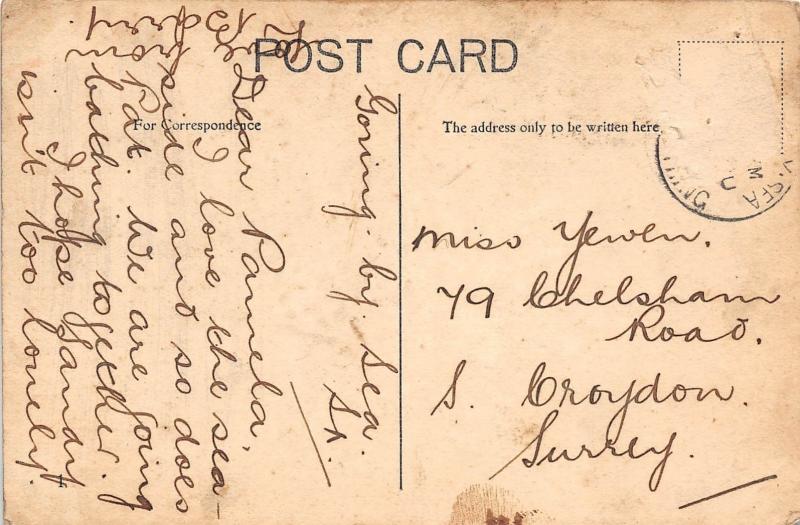 POST CARD
For Correspondence
The address only to be written here
Goring. by. Sea.
Sx.
Dear Pamela,
I love the sea-
side and so does
Pat. We are going
bathing together.
I hope Sandy
isn't too lonely.
from
Miss Yewen.
79 Chelsham
Road.
S. Croydon.
Surrey.
SEA